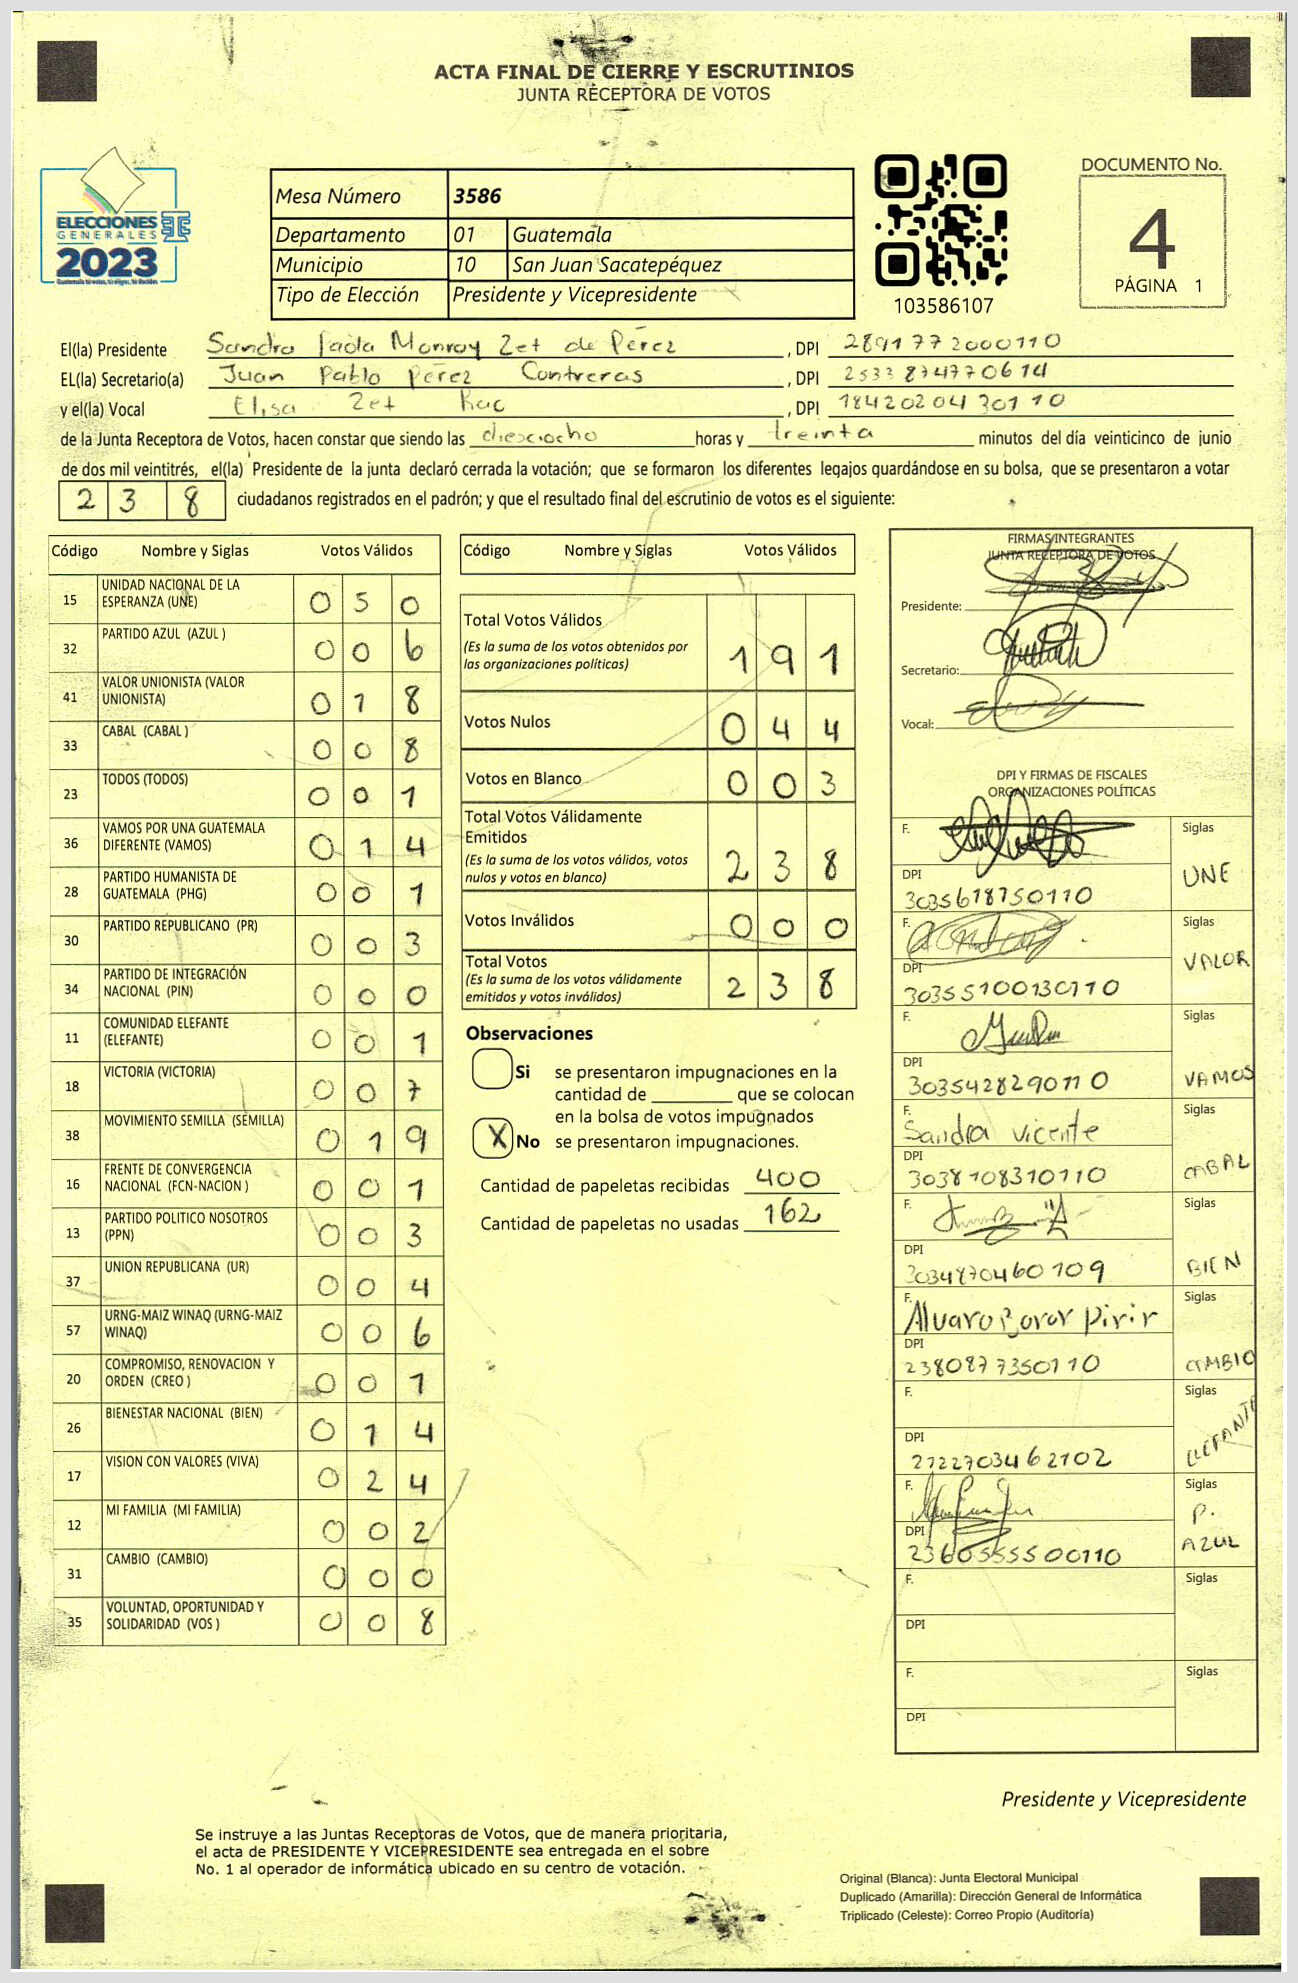 ACTA FINAL DE CIERRE Y ESCRUTINIOS
JUNTA RECEPTORA DE VOTOS
ELECCIONES
GENERALES
2023
Mesa Número 3586
Departamento 01 Guatemala
Municipio 10 San Juan Sacatepéquez
Tipo de Elección Presidente y Vicepresidente
103586107
DOCUMENTO No.
4
PÁGINA 1
El(la) Presidente Sandra Paola Monroy Zet de Pérez , DPI 2891772000110
EL(la) Secretario(a) Juan Pablo Pérez Contreras , DPI 2533874770614
y el(la) Vocal Elisa Zet Rac , DPI 1842020430110
de la Junta Receptora de Votos, hacen constar que siendo las diesciocho horas y treinta minutos del día veinticinco de junio
de dos mil veintitrés, el(la) Presidente de la junta declaró cerrada la votación; que se formaron los diferentes legajos guardándose en su bolsa, que se presentaron a votar
2 3 8 ciudadanos registrados en el padrón; y que el resultado final del escrutinio de votos es el siguiente:
Código Nombre y Siglas Votos Válidos
15 UNIDAD NACIONAL DE LA
ESPERANZA (UNE) 0 5 0
32 PARTIDO AZUL (AZUL ) 0 0 6
41 VALOR UNIONISTA (VALOR
UNIONISTA) 0 1 8
33 CABAL (CABAL ) 0 0 8
23 TODOS (TODOS) 0 0 1
36 VAMOS POR UNA GUATEMALA
DIFERENTE (VAMOS) 0 1 4
28 PARTIDO HUMANISTA DE
GUATEMALA (PHG) 0 0 1
30 PARTIDO REPUBLICANO (PR) 0 0 3
34 PARTIDO DE INTEGRACIÓN
NACIONAL (PIN) 0 0 0
11 COMUNIDAD ELEFANTE
(ELEFANTE) 0 0 1
18 VICTORIA (VICTORIA) 0 0 7
38 MOVIMIENTO SEMILLA (SEMILLA) 0 1 9
16 FRENTE DE CONVERGENCIA
NACIONAL (FCN-NACION ) 0 0 1
13 PARTIDO POLITICO NOSOTROS
(PPN) 0 0 3
37 UNION REPUBLICANA (UR) 0 0 4
57 URNG-MAIZ WINAQ (URNG-MAIZ
WINAQ) 0 0 6
20 COMPROMISO, RENOVACION Y
ORDEN (CREO ) 0 0 1
26 BIENESTAR NACIONAL (BIEN) 0 1 4
17 VISION CON VALORES (VIVA) 0 2 4
12 MI FAMILIA (MI FAMILIA) 0 0 2
31 CAMBIO (CAMBIO) 0 0 0
35 VOLUNTAD, OPORTUNIDAD Y
SOLIDARIDAD (VOS ) 0 0 8
Código Nombre y Siglas Votos Válidos
Total Votos Válidos
(Es la suma de los votos obtenidos por
las organizaciones políticas) 1 9 1
Votos Nulos 0 4 4
Votos en Blanco 0 0 3
Total Votos Válidamente
Emitidos
(Es la suma de los votos válidos, votos
nulos y votos en blanco) 2 3 8
Votos Inválidos 0 0 0
Total Votos
(Es la suma de los votos válidamente
emitidos y votos inválidos) 2 3 8
Observaciones
Si se presentaron impugnaciones en la
cantidad de ________ que se colocan
en la bolsa de votos impugnados
X No se presentaron impugnaciones.
Cantidad de papeletas recibidas 400
Cantidad de papeletas no usadas 162
FIRMAS INTEGRANTES
JUNTA RECEPTORA DE VOTOS
Presidente:
Secretario:
Vocal:
DPI Y FIRMAS DE FISCALES
ORGANIZACIONES POLÍTICAS
F. Siglas
DPI UNE
3035618750110
F. Siglas
DPI VALOR
30355100130110
F. Siglas
DPI VAMOS
3035428290110
F. Sandra Vicente Siglas
DPI CABAL
3038108310110
F. Siglas
DPI BIEN
3034870460109
F. Alvaro Boror Pirir Siglas
DPI CAMBIO
2380877350110
F. Siglas
DPI ELEFANTE
2122703462102
F. Siglas
P.
DPI AZUL
2360555500110
F. Siglas
DPI
F. Siglas
DPI
Presidente y Vicepresidente
Se instruye a las Juntas Receptoras de Votos, que de manera prioritaria,
el acta de PRESIDENTE Y VICEPRESIDENTE sea entregada en el sobre
No. 1 al operador de informática ubicado en su centro de votación.
Original (Blanca): Junta Electoral Municipal
Duplicado (Amarilla): Dirección General de Informática
Triplicado (Celeste): Correo Propio (Auditoría)